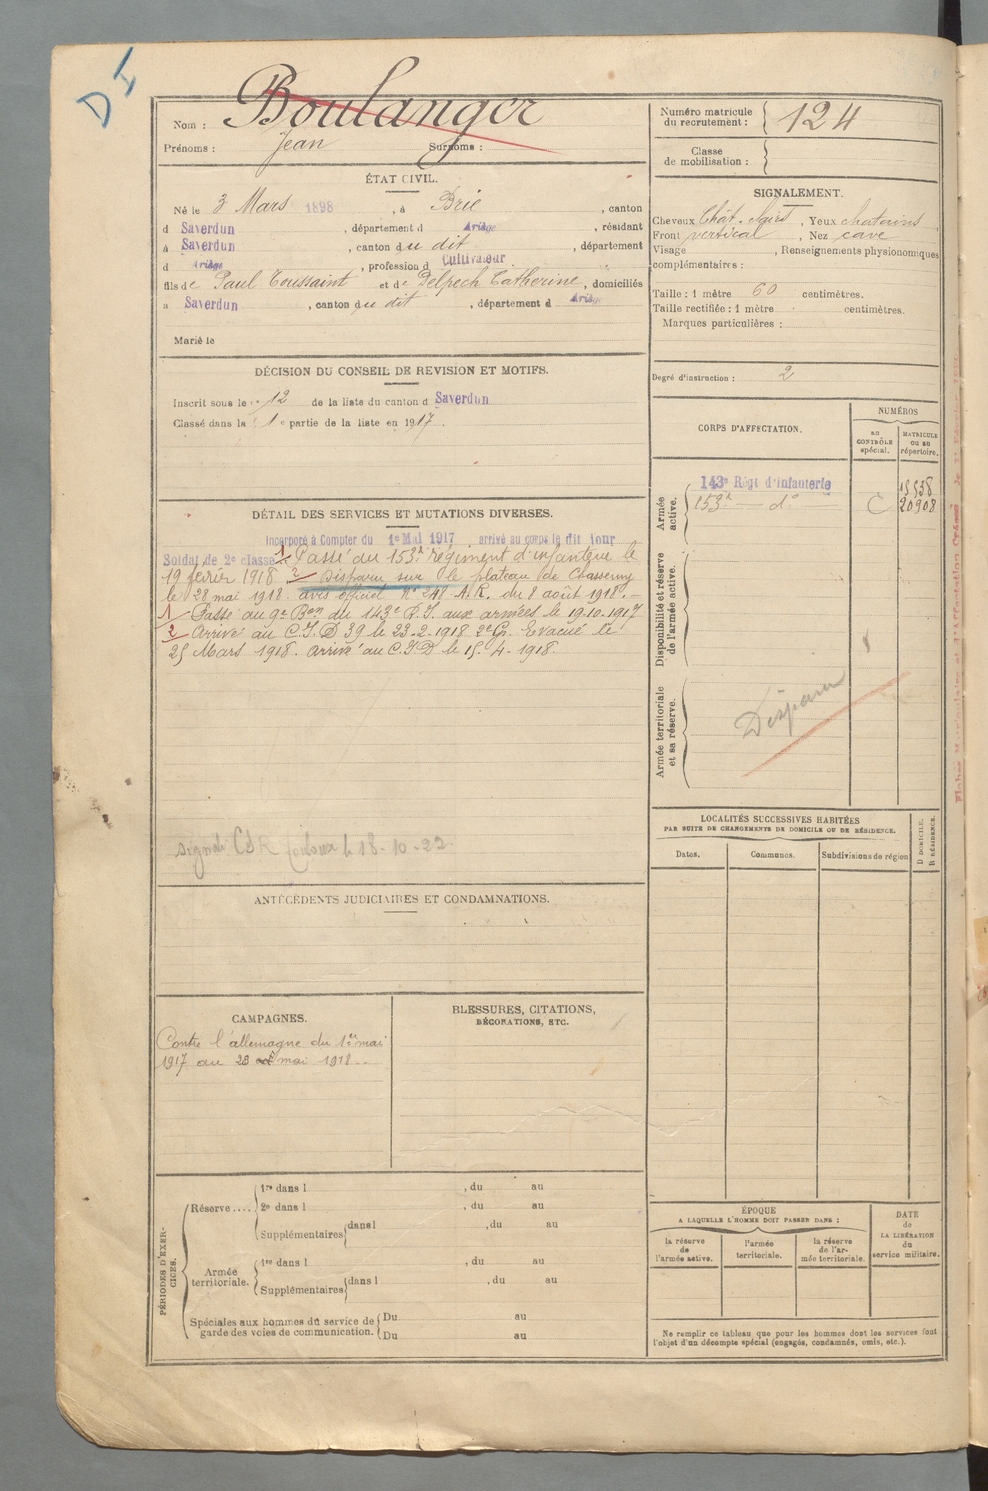 DI
Nom : Boulanger
Prénoms : Jean Surnoms :
ÉTAT CIVIL.
Né le 3 Mars 1898, à Brie, canton
d Saverdun, département d Ariège, résidant
à Saverdun, canton du dit, département
d Ariège, profession d Cultivateur
fils de Paul Toussaint et de Delpech Catherine, domiciliés
à Saverdun, canton du dit, département d Ariège
Marié le
DÉCISION DU CONSEIL DE REVISION ET MOTIFS.
Inscrit sous le n° 12 de la liste du canton d Saverdun
Classé dans la 1e partie de la liste en 1917.
DÉTAIL DES SERVICES ET MUTATIONS DIVERSES.
Incorporé à Compter du 1e Mai 1917, arrivé au corps le dit jour
Soldat de 2e classe 1 Passé au 153e régiment d'infanterie le
19 février 1918 2 Disparu sur le plateau de Chassemy
le 28 mai 1918. avis officiel N° 248 A.R. du 8 août 1918.
1/ Passé au 9e Bon du 143e R.I. aux armées le 19.10.1917
2/ Arrivé au C.I.D 39 le 23-2-1918 2e Cr. Evacué le
25 Mars 1918. arrivé au C.I.D le 15.4-1918.
signalé CSR Toulouse le 18-10-22.
ANTÉCÉDENTS JUDICIAIRES ET CONDAMNATIONS.
CAMPAGNES.
Contre l'allemagne du 1er mai
1917 au 28 mai 1918
BLESSURES, CITATIONS,
DÉCORATIONS, ETC.
PÉRIODES D'EXER-
CICES.
Réserve....
1re dans l , du au
2e dans l , du au
Supplémentaires dans l , du au
Armée
territoriale.
1re dans l , du au
Supplémentaires dans l , du au
Spéciales aux hommes du service de
garde des voies de communication.
Du au
Du au
Numéro matricule
du recrutement : 124
Classe
de mobilisation :
SIGNALEMENT.
Cheveux Chât. clairs, Yeux chatains
Front vertical, Nez cave
Visage , Renseignements physionomiques
complémentaires :
Taille : 1 mètre 60 centimètres.
Taille rectifiée : 1 mètre centimètres.
Marques particulières :
Degré d'instruction : 2
CORPS D'AFFECTATION.
NUMÉROS
au
CONTRÔLE
spécial.
MATRICULE
ou au
répertoire.
Armée
active.
143e Régt d'Infanterie 15538
153e — d° C 20908
Disponibilité et réserve
de l'armée active.
Armée territoriale
et sa réserve.
Disparu
LOCALITÉS SUCCESSIVES HABITÉES
PAR SUITE DE CHANGEMENTS DE DOMICILE OU DE RÉSIDENCE.
Dates.
Communes.
Subdivisions de région
D DOMICILE.
R RÉSIDENCE.
ÉPOQUE
A LAQUELLE L'HOMME DOIT PASSER DANS :
la réserve
de
l'armée active.
l'armée
territoriale.
la réserve
de l'ar-
mée territoriale.
DATE
de
LA LIBÉRATION
du
service militaire.
Ne remplir ce tableau que pour les hommes dont les services font
l'objet d'un décompte spécial (engagés, condamnés, omis, etc.).